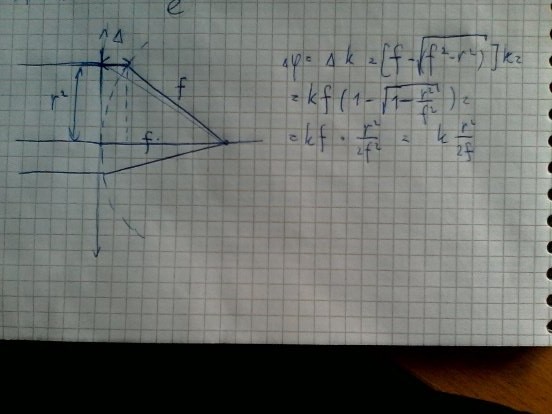 e
Δ
f
r²
f
Δφ = Δ k = [f - √(f² - r²)] k =
= k f (1 - √(1 - r²/f²)) =
= k f · r²/2f² = k r²/2f